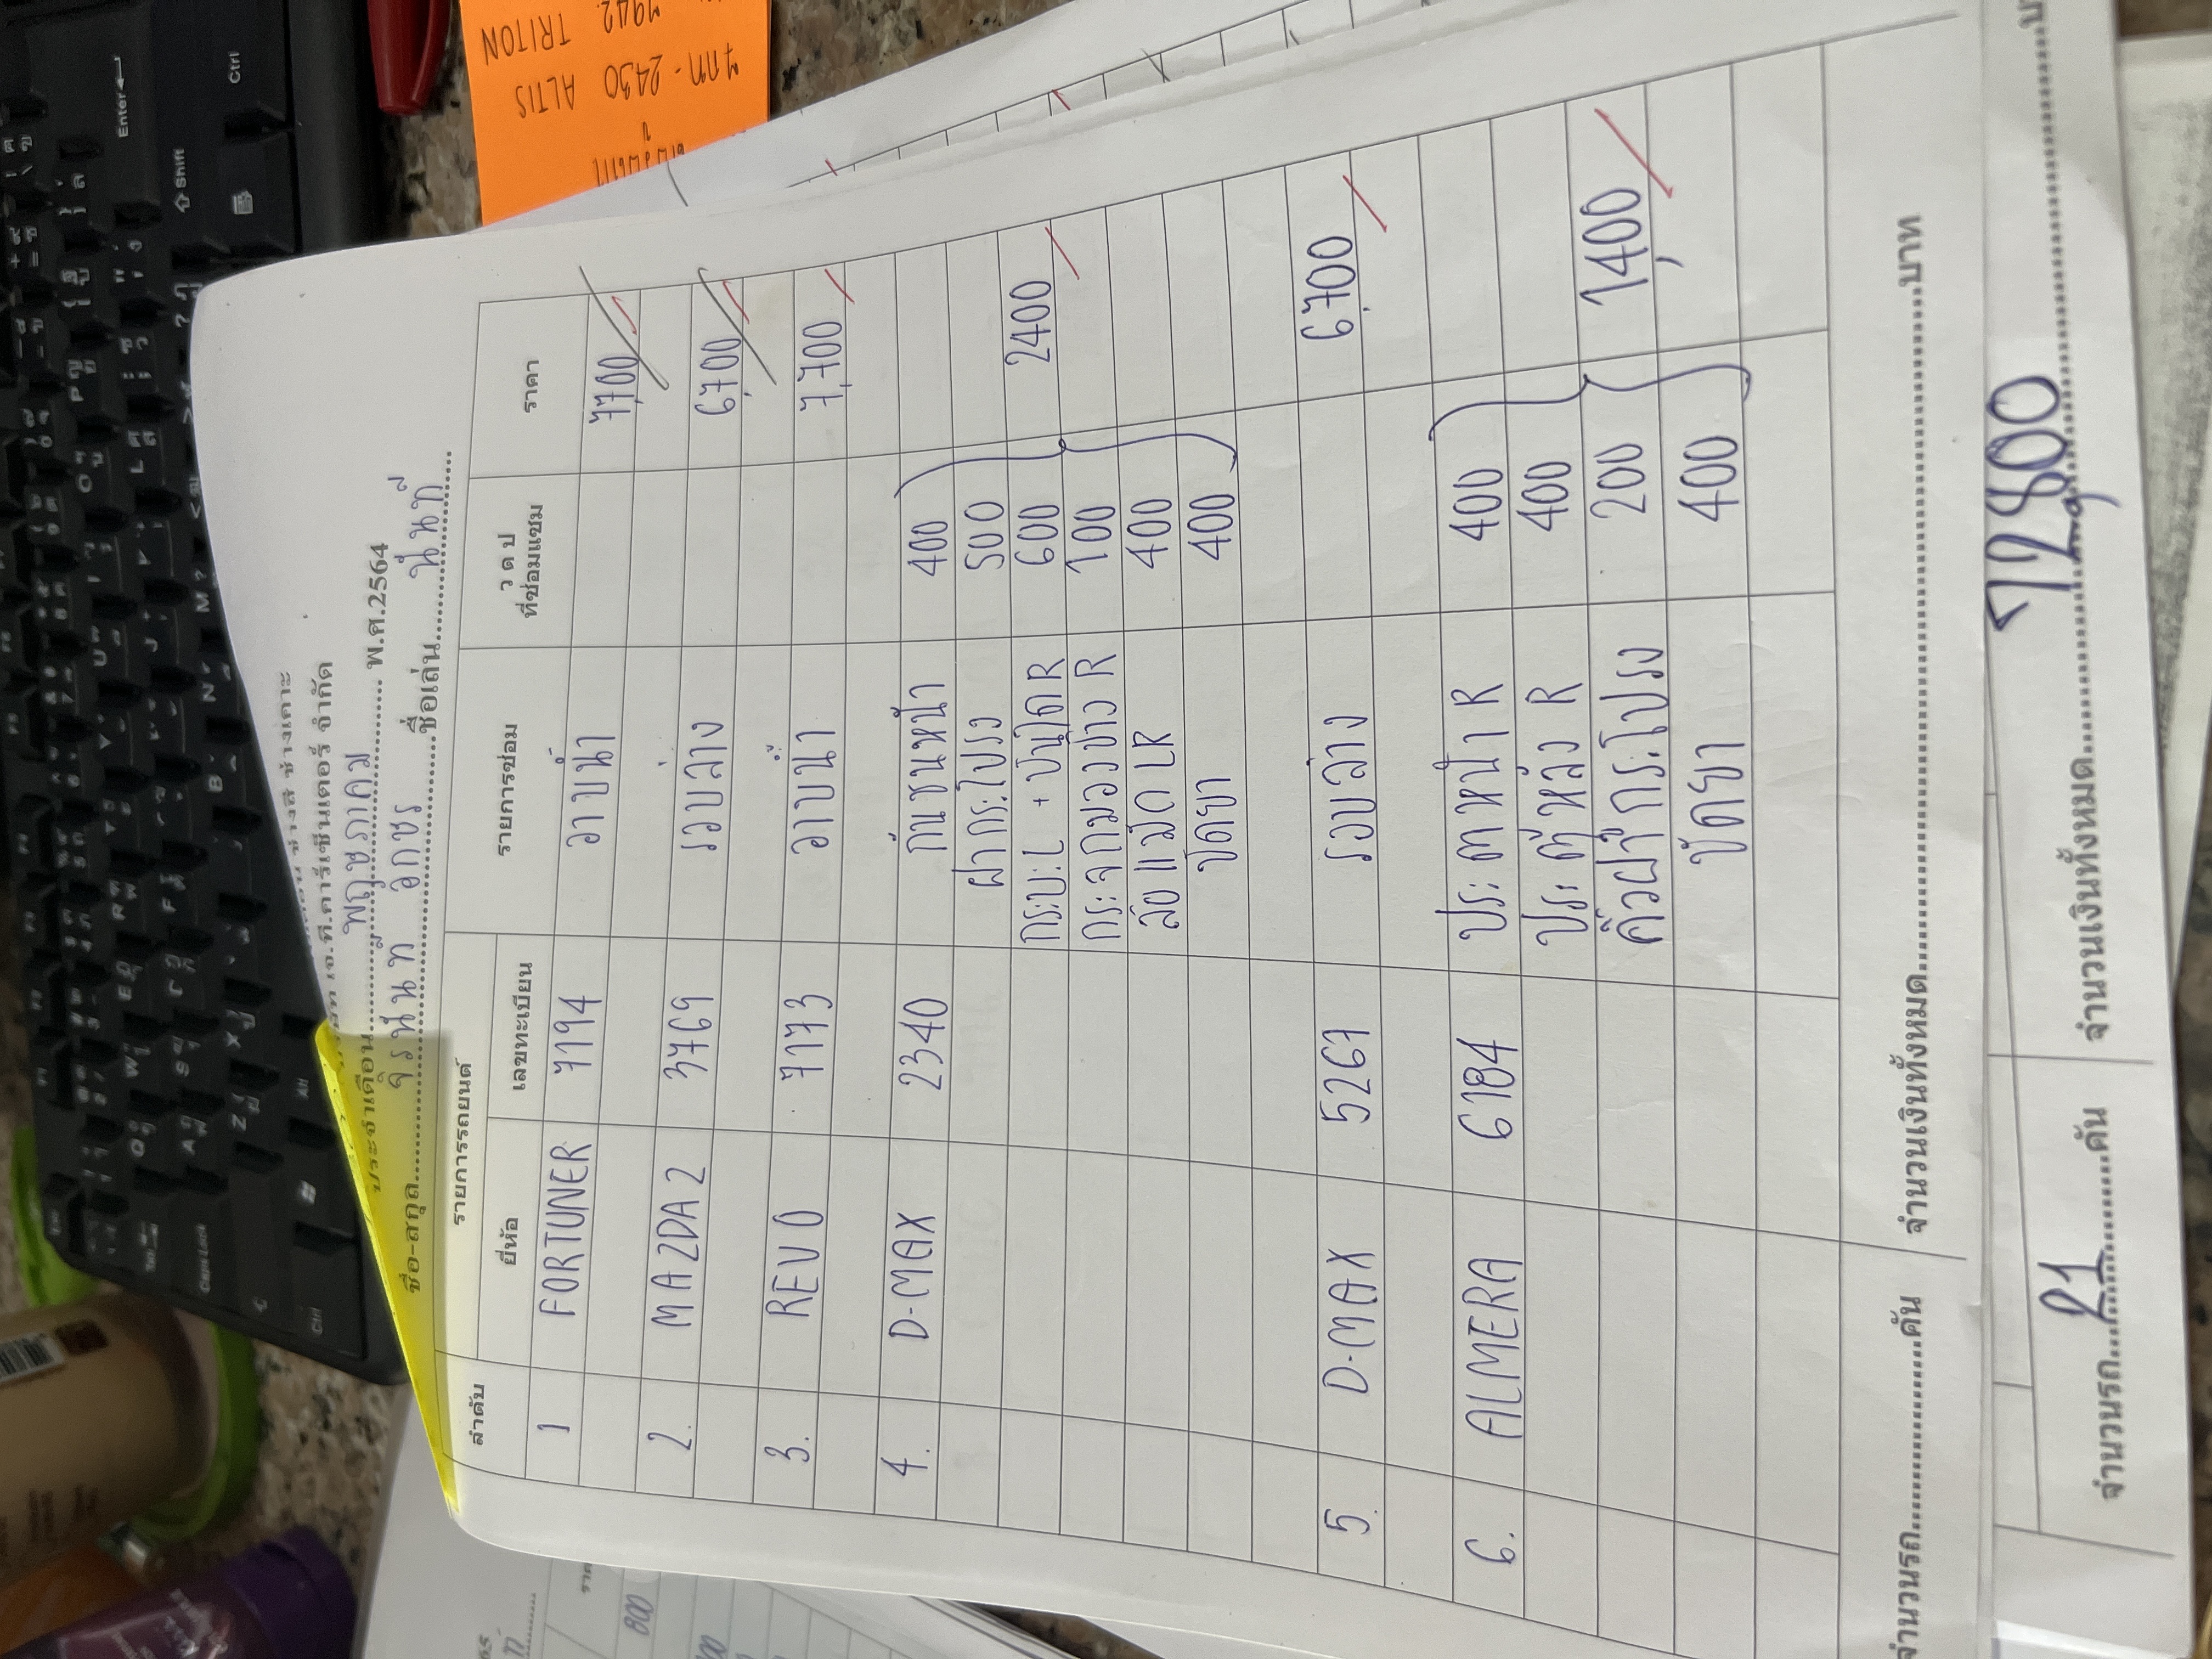 ช่างสี ช่างเคาะ
เอ.ที.คาร์เซ็นเตอร์ จำกัด
ประจำเดือน พฤษภาคม พ.ศ.2564
ชื่อ-สกุล จิรนันท์ อักษร ชื่อเล่น นันท์
ลำดับ รายการรถยนต์ รายการซ่อม ว ด ป ที่ซ่อมแซม ราคา
ยี่ห้อ เลขทะเบียน
1 FORTUNER 7194 อาบน้ำ 7,700
2. MAZDA 2 3769 รอบล่าง 6,700
3. REVO 7173 อาบน้ำ 7,700
4. D-MAX 2340 กันชนหน้า 400
ฝากระโปรง 500
กระบะ L + บันได R 600 2400
กระจกมองข้าง R 100
ล้อแม็ก LR 400
ขัดยา 400
5. D-MAX 5267 รอบล่าง 6,700
6. ALMERA 6184 ประตูหน้า R 400
ประตูหลัง R 400
คิ้วฝากระโปรง 200 1,400
ขัดยา 400
จำนวนรถ คัน จำนวนเงินทั้งหมด บาท
จำนวนรถ 21 คัน จำนวนเงินทั้งหมด 72,800
ฯกท - 2430 ALTIS
7942 TRITON
800